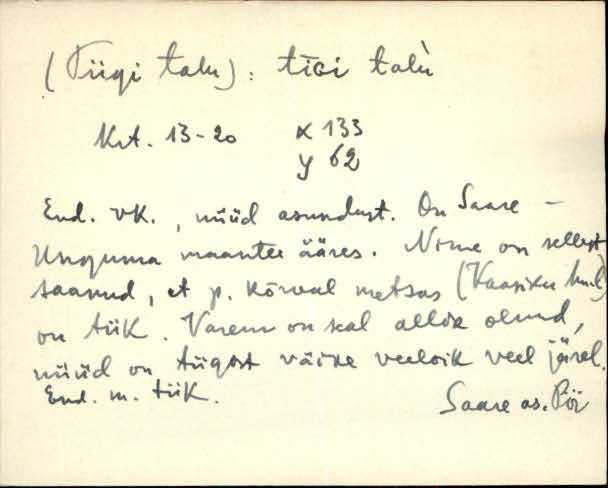 (Tiigi talu): tiGi talù
Krt. 13-20 x 133
y 62
End. vk., nüüd asundust. On Saare -
maantee ääres. Nime on sellest
saanud, et p. kõrval metsas (Kaasiku
on tiik. Varem on seal allik olnud,
nüüd on tiigist väike veeloik veel järel.
End. m. tiik. Saare as. Pör